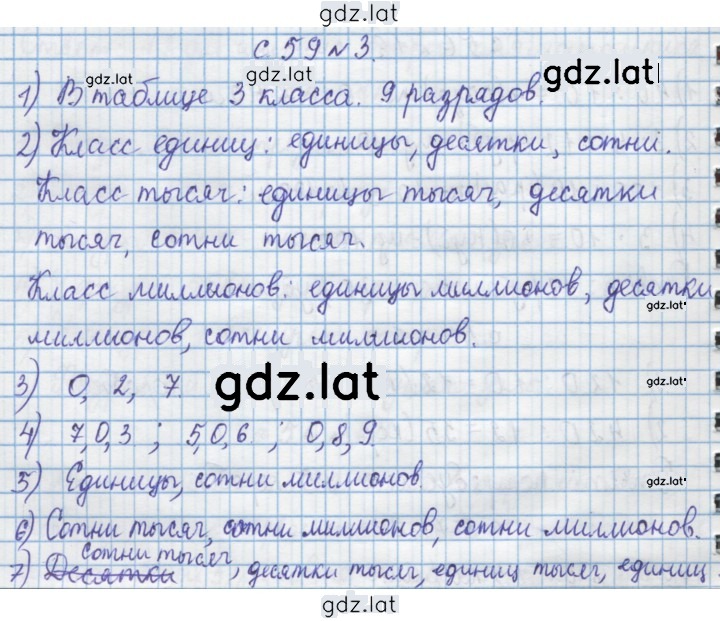 gdz.lat
с 59 № 3.
gdz.lat
gdz.lat
1) В таблице 3 класса. 9 разрядов.
2) Класс единиц: единицы, десятки, сотни.
Класс тысяч: единицы тысяч, десятки
тысяч, сотни тысяч.
Класс миллионов: единицы миллионов, десятки
gdz.lat
миллионов, сотни миллионов.
3) 0, 2, 7
gdz.lat
gdz.lat
4) 7,0,3 ; 5,0,6 ; 0,8,9
5) Единицы, сотни миллионов.
gdz.lat
6) Сотни тысяч, сотни миллионов, сотни миллионов.
сотни тысяч
7) Десятки, десятки тысяч, единиц тысяч, единиц
gdz.lat